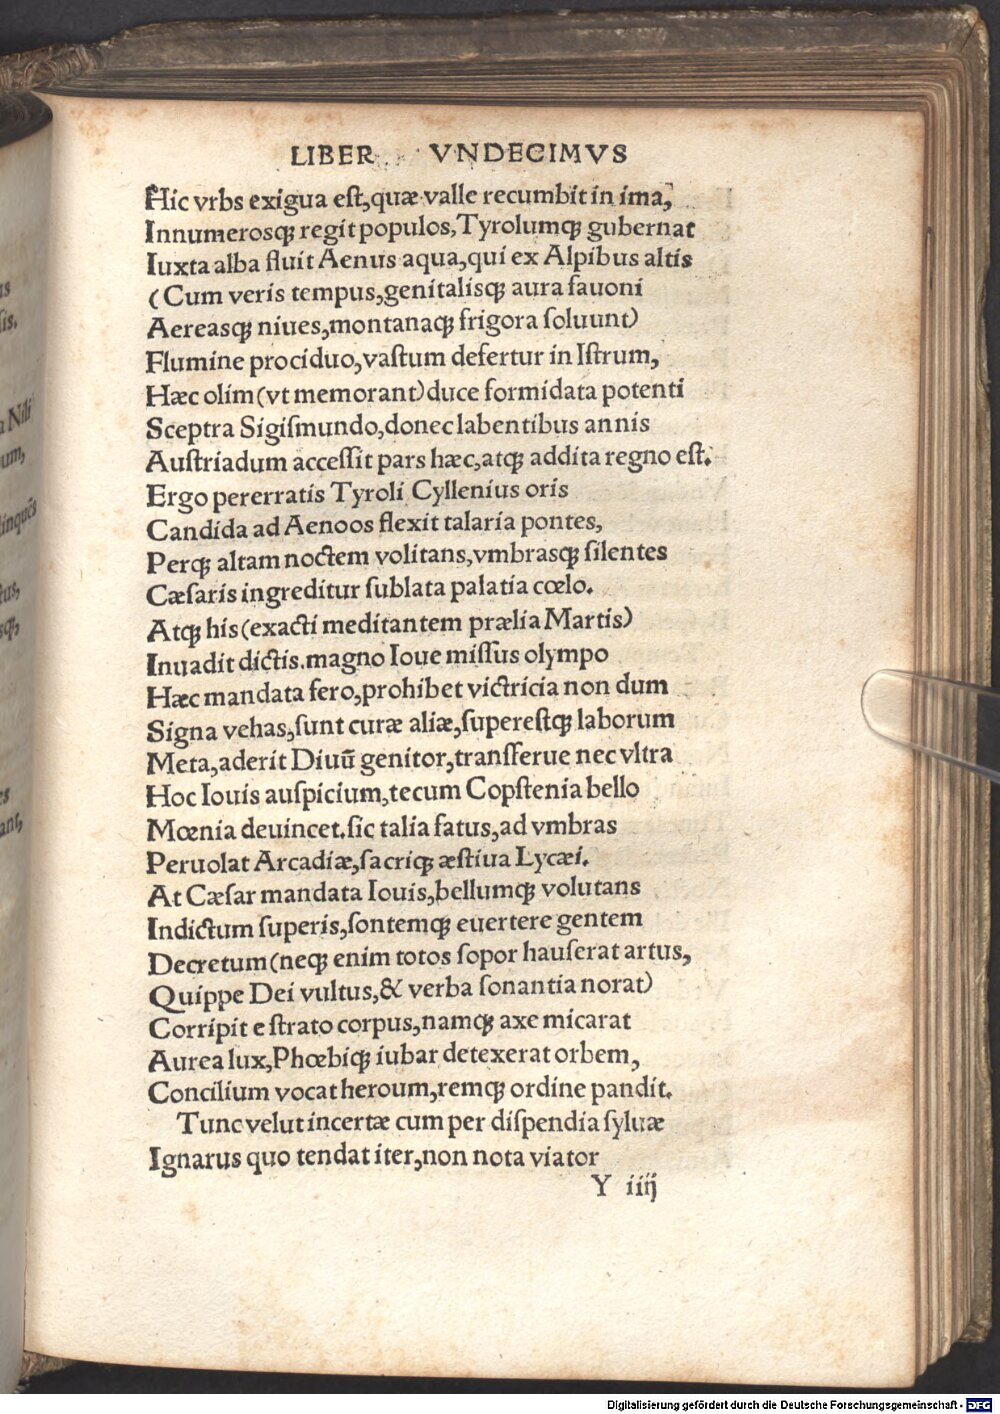 LIBER VNDECIMVS
Hic vrbs exigua est, quæ valle recumbit in ima,
Innumerosqꝫ regit populos, Tyrolumqꝫ gubernat
Iuxta alba fluit Aenus aqua, qui ex Alpibus altis
(Cum veris tempus, genitalisqꝫ aura fauoni
Aereasqꝫ niues, montanaqꝫ frigora soluunt)
Flumine prociduo, vastum defertur in Istrum,
Hæc olim (vt memorant) duce formidata potenti
Sceptra Sigismundo, donec labentibus annis
Austriadum accessit pars hæc, atqꝫ addita regno est.
Ergo pererratis Tyroli Cyllenius oris
Candida ad Aenoos flexit talaria pontes,
Perqꝫ altam noctem volitans, vmbrasqꝫ silentes
Cæsaris ingreditur sublata palatia cœlo.
Atqꝫ his (exacti meditantem prælia Martis)
Inuadit dictis. magno Ioue missus olympo
Hæc mandata fero, prohibet victricia non dum
Signa vehas, sunt curæ aliæ, superestqꝫ laborum
Meta, aderit Diuũ genitor, transferue nec vltra
Hoc Iouis auspicium, tecum Copstenia bello
Mœnia deuincet. sic talia fatus, ad vmbras
Peruolat Arcadiæ, sacriqꝫ æstiua Lycæi.
At Cæsar mandata Iouis, bellumqꝫ volutans
Indictum superis, sontemqꝫ euertere gentem
Decretum (neqꝫ enim totos sopor hauserat artus,
Quippe Dei vultus, & verba sonantia norat)
Corripit e strato corpus, namqꝫ axe micarat
Aurea lux, Phœbiqꝫ iubar detexerat orbem,
Concilium vocat heroum, remqꝫ ordine pandit.
Tunc velut incertæ cum per dispendia syluæ
Ignarus quo tendat iter, non nota viator
Y iiij
Nili
Digitalisierung gefördert durch die Deutsche Forschungsgemeinschaft - DFG